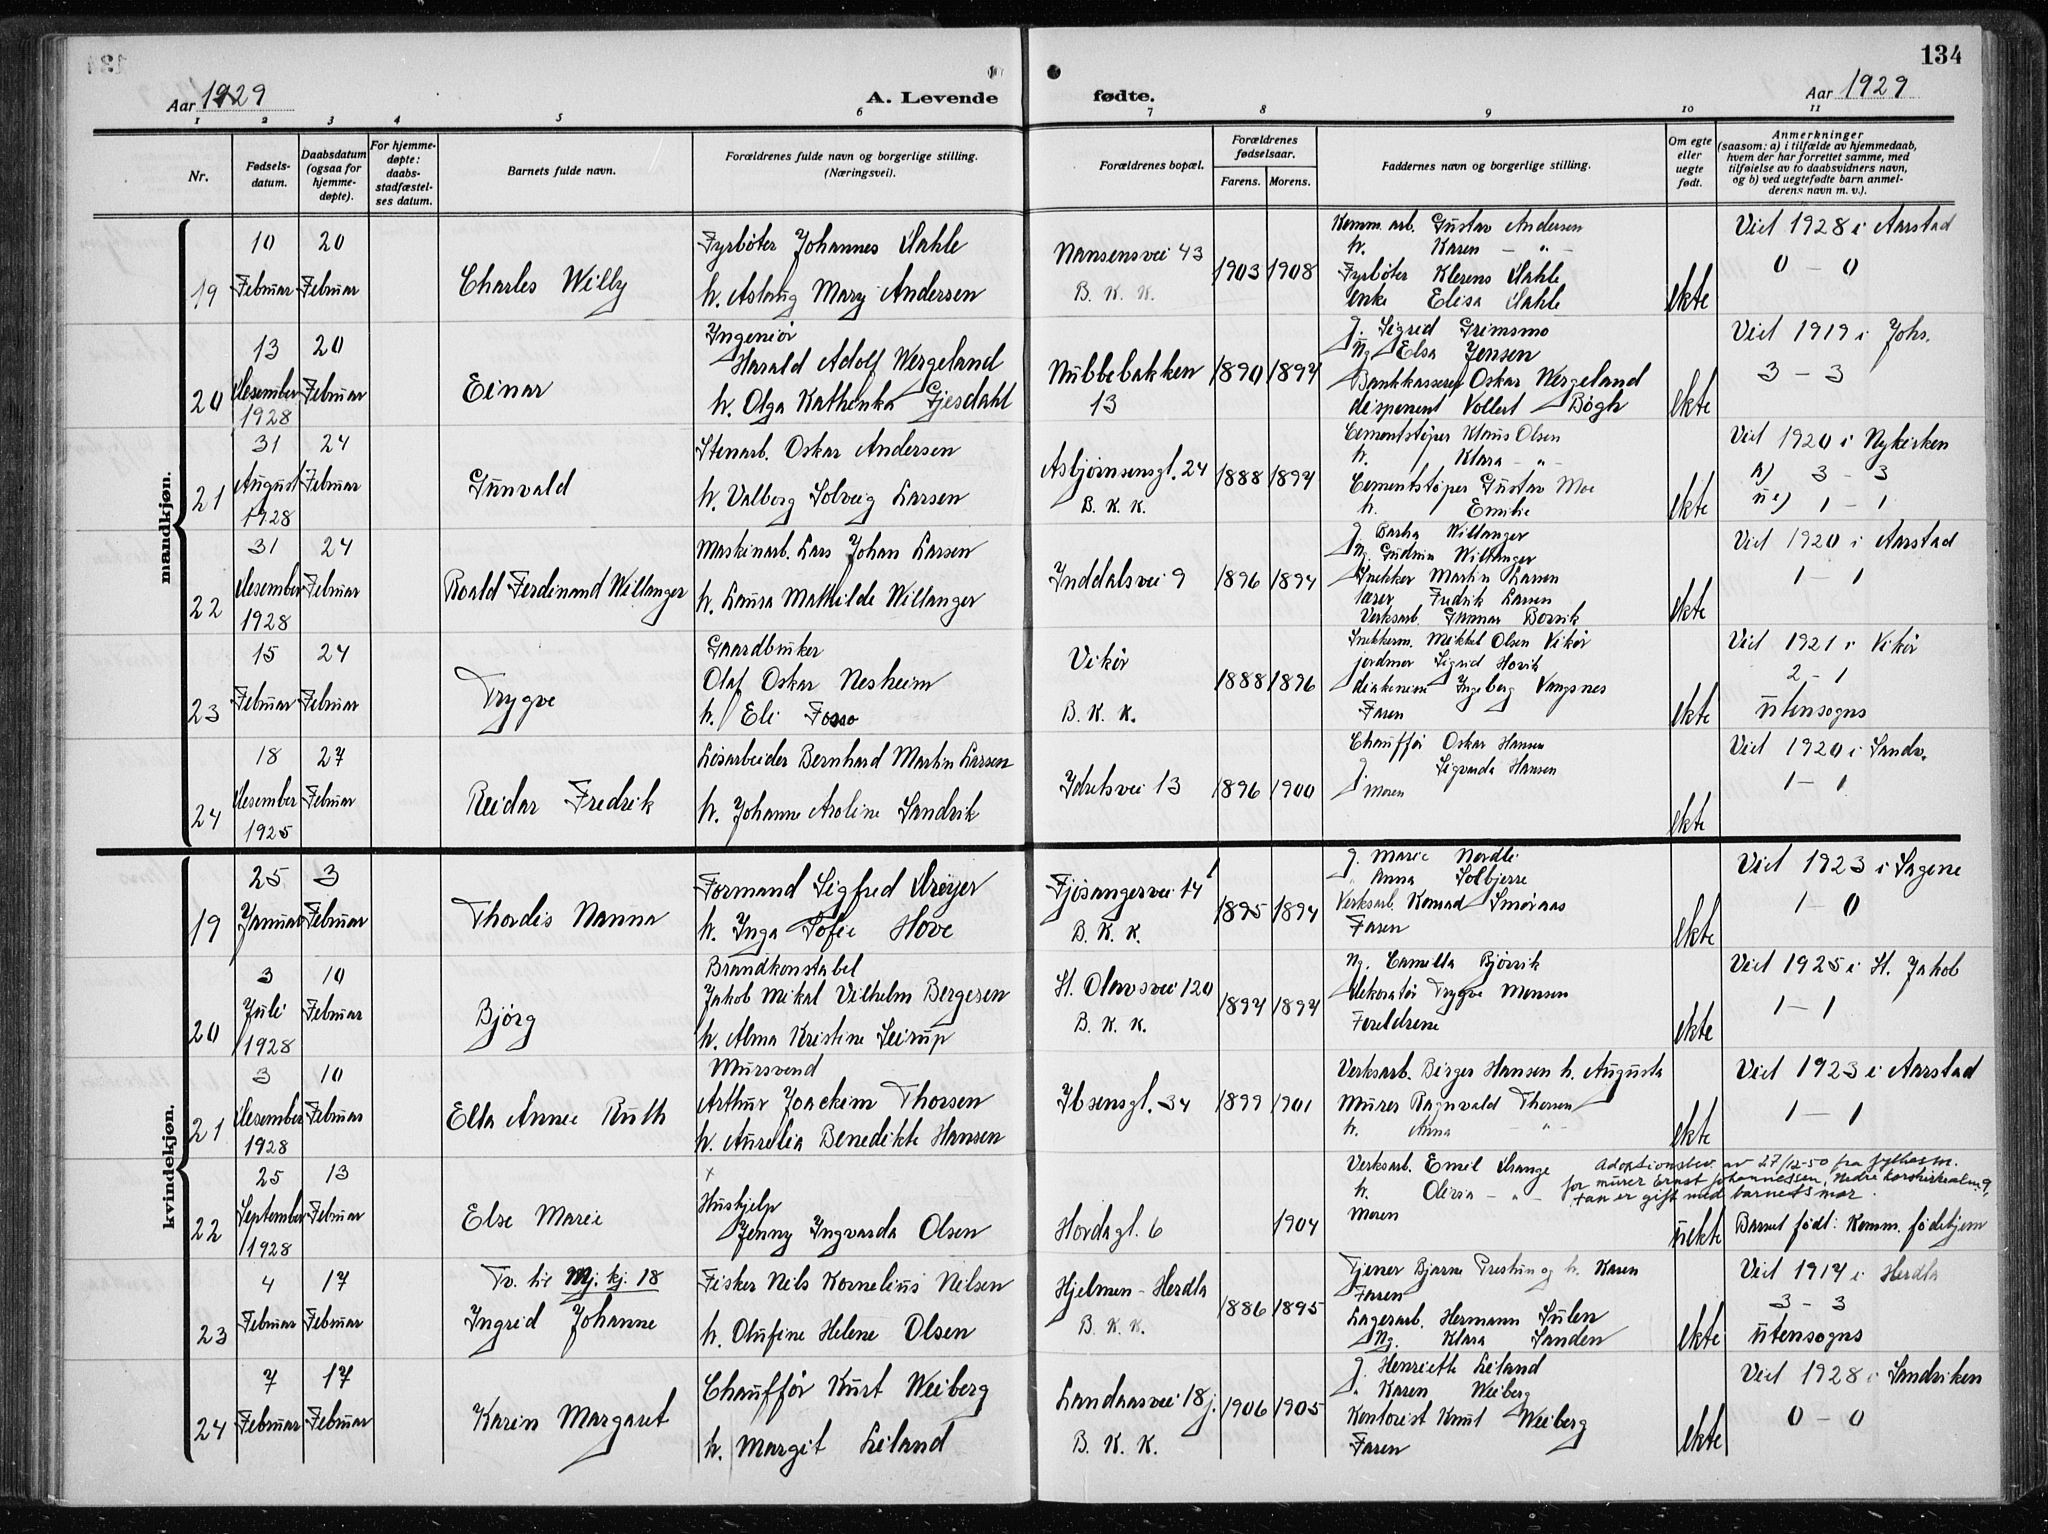 134
Aar 1929
A. Levende
fødte.
Aar 1929
1 2 3 4 5 6 7 8 9 10 11
Nr.
Fødsels-
datum.
Daabsdatum
(ogsaa for
hjemme-
døpte).
For hjemme-
døpte:
daabs-
stadfæstel-
ses datum.
Barnets fulde navn.
Forældrenes fulde navn og borgerlige stilling.
(Næringsvei).
Forældrenes bopæl.
Forældrenes
fødselsaar.
Farens. Morens.
Faddernes navn og borgerlige stilling.
Om egte
eller
uegte
født.
Anmerkninger
(saasom: a) i tilfælde av hjemmedaab,
hvem der har forrettet samme, med
tilføielse av to daabsvidners navn,
og b) ved uegtefødte barn anmel-
derens navn m. v.).
mandkjøn.
19
10
Februar
20
Februar
Charles Willy
Fyrbøter Johannes Dahle
h. Aslaug Mary Andersen
Nansensvei 43
B. K. K.
1903 1908
Komm. arb. Gustav Andersen
h. Karen - " -
Fyrbøter Klerens Dahle
Enke Elisa Dahle
ekte
Viet 1928 i Aarstad
0 - 0
20
13
Desember
1928
20
Februar
Einar
Ingeniør
Harald Adolf Wergeland
h. Olga Kathinka Gjesdahl
Nubbebakken
13
1890 1894
g. Sigrid Grimsmo
Ug. Elsa Jensen
Bankkasserer Oskar Wergeland
disponent Vollert Bøgh
ekte
Viet 1919 i Johs.
3 - 3
21
31
August
1928
24
Februar
Gunvald
Stenarb. Oskar Andersen
h. Valborg Solveig Larsen
Asbjørnsensgl. 24
B. K. K.
1888 1894
Cementstøper Klaus Olsen
h. Klara - " -
Cementstøper Gustav Moe
h. Emilie
ekte
Viet 1920 i Nykirken
a) 3 - 3
ue) 1 - 1
22
31
Desember
1928
24
Februar
Roald Ferdinand Willanger
Maskinarb. Lars Johan Larsen
h. Laura Mathilde Willanger
Inddalsvei 9
1896 1894
g. Basha Willanger
Ug. Gudrun Willanger
Snekker Martin Larsen
lærer Fredrik Larsen
Verksarb. Gunnar Borvik
ekte
Viet 1920 i Aarstad
1 - 1
23
15
Februar
24
Februar
Trygve
Gaardbruker
Olaf Oskar Nesheim
h. Eli Fosso
Vikør
B. K. K.
1888 1896
Snekkerm. Mikkel Olsen Vikør
jordmor Sigrid Hovik
diakenisse Ingeborg Vangsnes
Faren
ekte
Viet 1921 i Vikør
2 - 1
Utensogns
24
18
Desember
1925
27
Februar
Reidar Fredrik
Løsarbeider Bernhard Martin Larsen
h. Johanne Aroline Sandvik
Idretsvei 13
1896 1900
Chauffør Oskar Hansen
g. Sigvarda Hansen
Moren
ekte
Viet 1920 i Sandv.
1 - 1
kvindekjøn.
19
25
Januar
3
Februar
Thordis Nanna
Formand Sigfred Dreyer
h. Inga Sofie Hove
Fjøsangersvei 14
B. K. K.
1895 1894
g. Marie Nordli
" Anna Solbjerre
Verksarb. Konrad Smøraas
Faren
ekte
Viet 1923 i Sagene
1 - 0
20
3
Juli
1928
10
Februar
Bjørg
Brandkonstabel
Jakob Mikal Vilhelm Bergesen
h. Alma Kristine Seirup
St. Olavsvei 120
B. K. K.
1894 1894
Ug. Camilla Bjørvik
Dekoratør Trygve Monsen
Foreldrene
ekte
Viet 1925 i St. Jakob
1 - 1
21
3
Desember
1928
10
Februar
Elta Annie Ruth
Mursvend
Arthur Joachim Thorsen
h. Aurelia Benedikte Hansen
Ibsensgl. 34
1899 1901
Verksarb. Birger Hansen h. Augusta
Murer Ragnvald Thorsen
h. Anna - " -
ekte
Viet 1923 i Aarstad
1 - 1
22
25
September
1928
13
Februar
Else Marie
x
Hushjelp
Jenny Ingvarda Olsen
Hordagl. 6
1904
Verksarb. Emil Drange
h. Olivia - " -
Moren
Adoptionsbev. av 27/12-50 fra fylkesm.
for murer Ernst Johannessen, Nedre Korskirkealm. 9,
Han er gift med barnets mor.
uekte
Barnet født: Komm. fødehjem
23
4
Februar
17
Februar
Tv. til Mj. kj. 18
Ingrid Johanne
Fisker Nils Kornelius Nilsen
h. Olufine Helene Olsen
Hjelmen - Herdla
B. K. K.
1886 1895
Tjener Bjarne Trestun og h. Karen
Faren
Lagerarb. Hermann Sulen
Ug. Klara Sanden
ekte
Viet 1914 i Herdla
3 - 3
Utensogns
24
7
Februar
17
Februar
Karin Margaret
Chauffør Kurt Weiberg
h. Margit Leiland
Landaasvei 18 j.
B. K. K.
1906 1905
g. Henriette Leiland
" Karen Weiberg
Kontorist Knut Weiberg
Faren
ekte
Viet 1928 i Sandviken
0 - 0